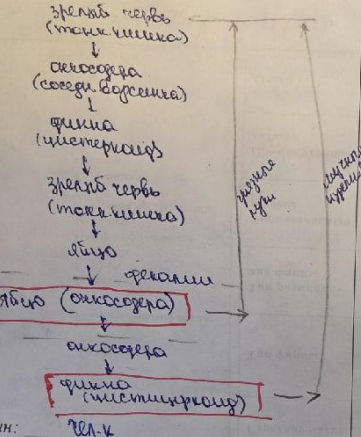 зрелый червь
(тонк. кишка)
онкосфера
(соседн. ворсинка)
финна
(цистеркоид)
зрелый червь
(тонк. кишка)
яйцо
фекалии
яйцо (онкосфера)
онкосфера
финна
(цистицеркоид)
чел-к
грязные
руки